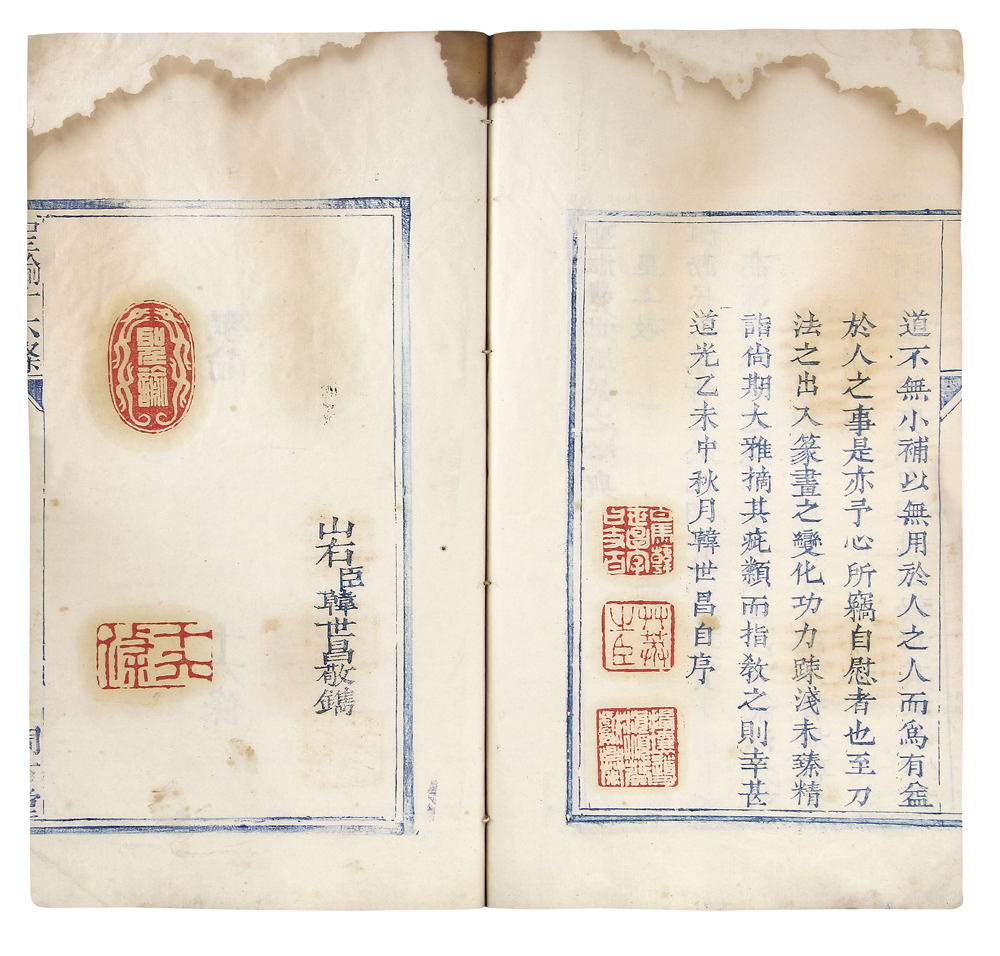 道不無小補以無用於人之人而為有益
於人之事是亦予心所竊自慰者也至刀
法之出入篆畫之變化功力疎淺未臻精
詣尚期大雅摘其疵纇而指教之則幸甚
道光乙未中秋月韓世昌自序
草莽之臣
山右臣韓世昌敬鐫
聖諭
十六條
聖諭十六條